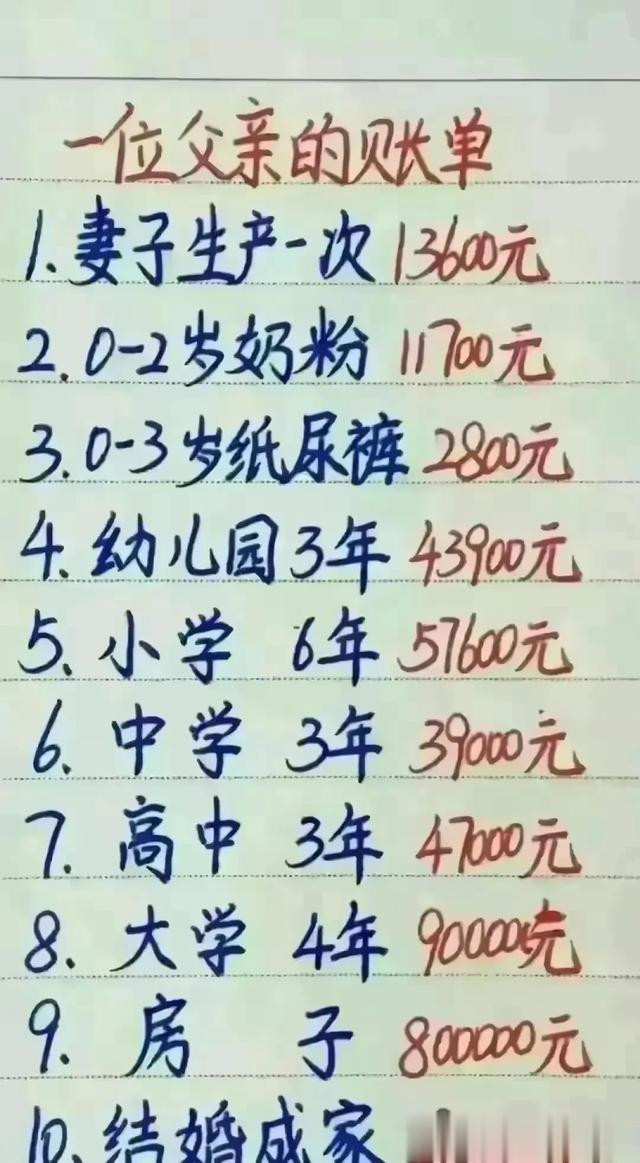 一位父亲的账单
1.妻子生产一次 13600元
2.0-2岁奶粉 11700元
3.0-3岁纸尿裤 2800元
4.幼儿园3年 43900元
5.小学 6年 57600元
6.中学 3年 39000元
7.高中 3年 47000元
8.大学 4年 90000元
9.房 子 800000元
10.结婚成家